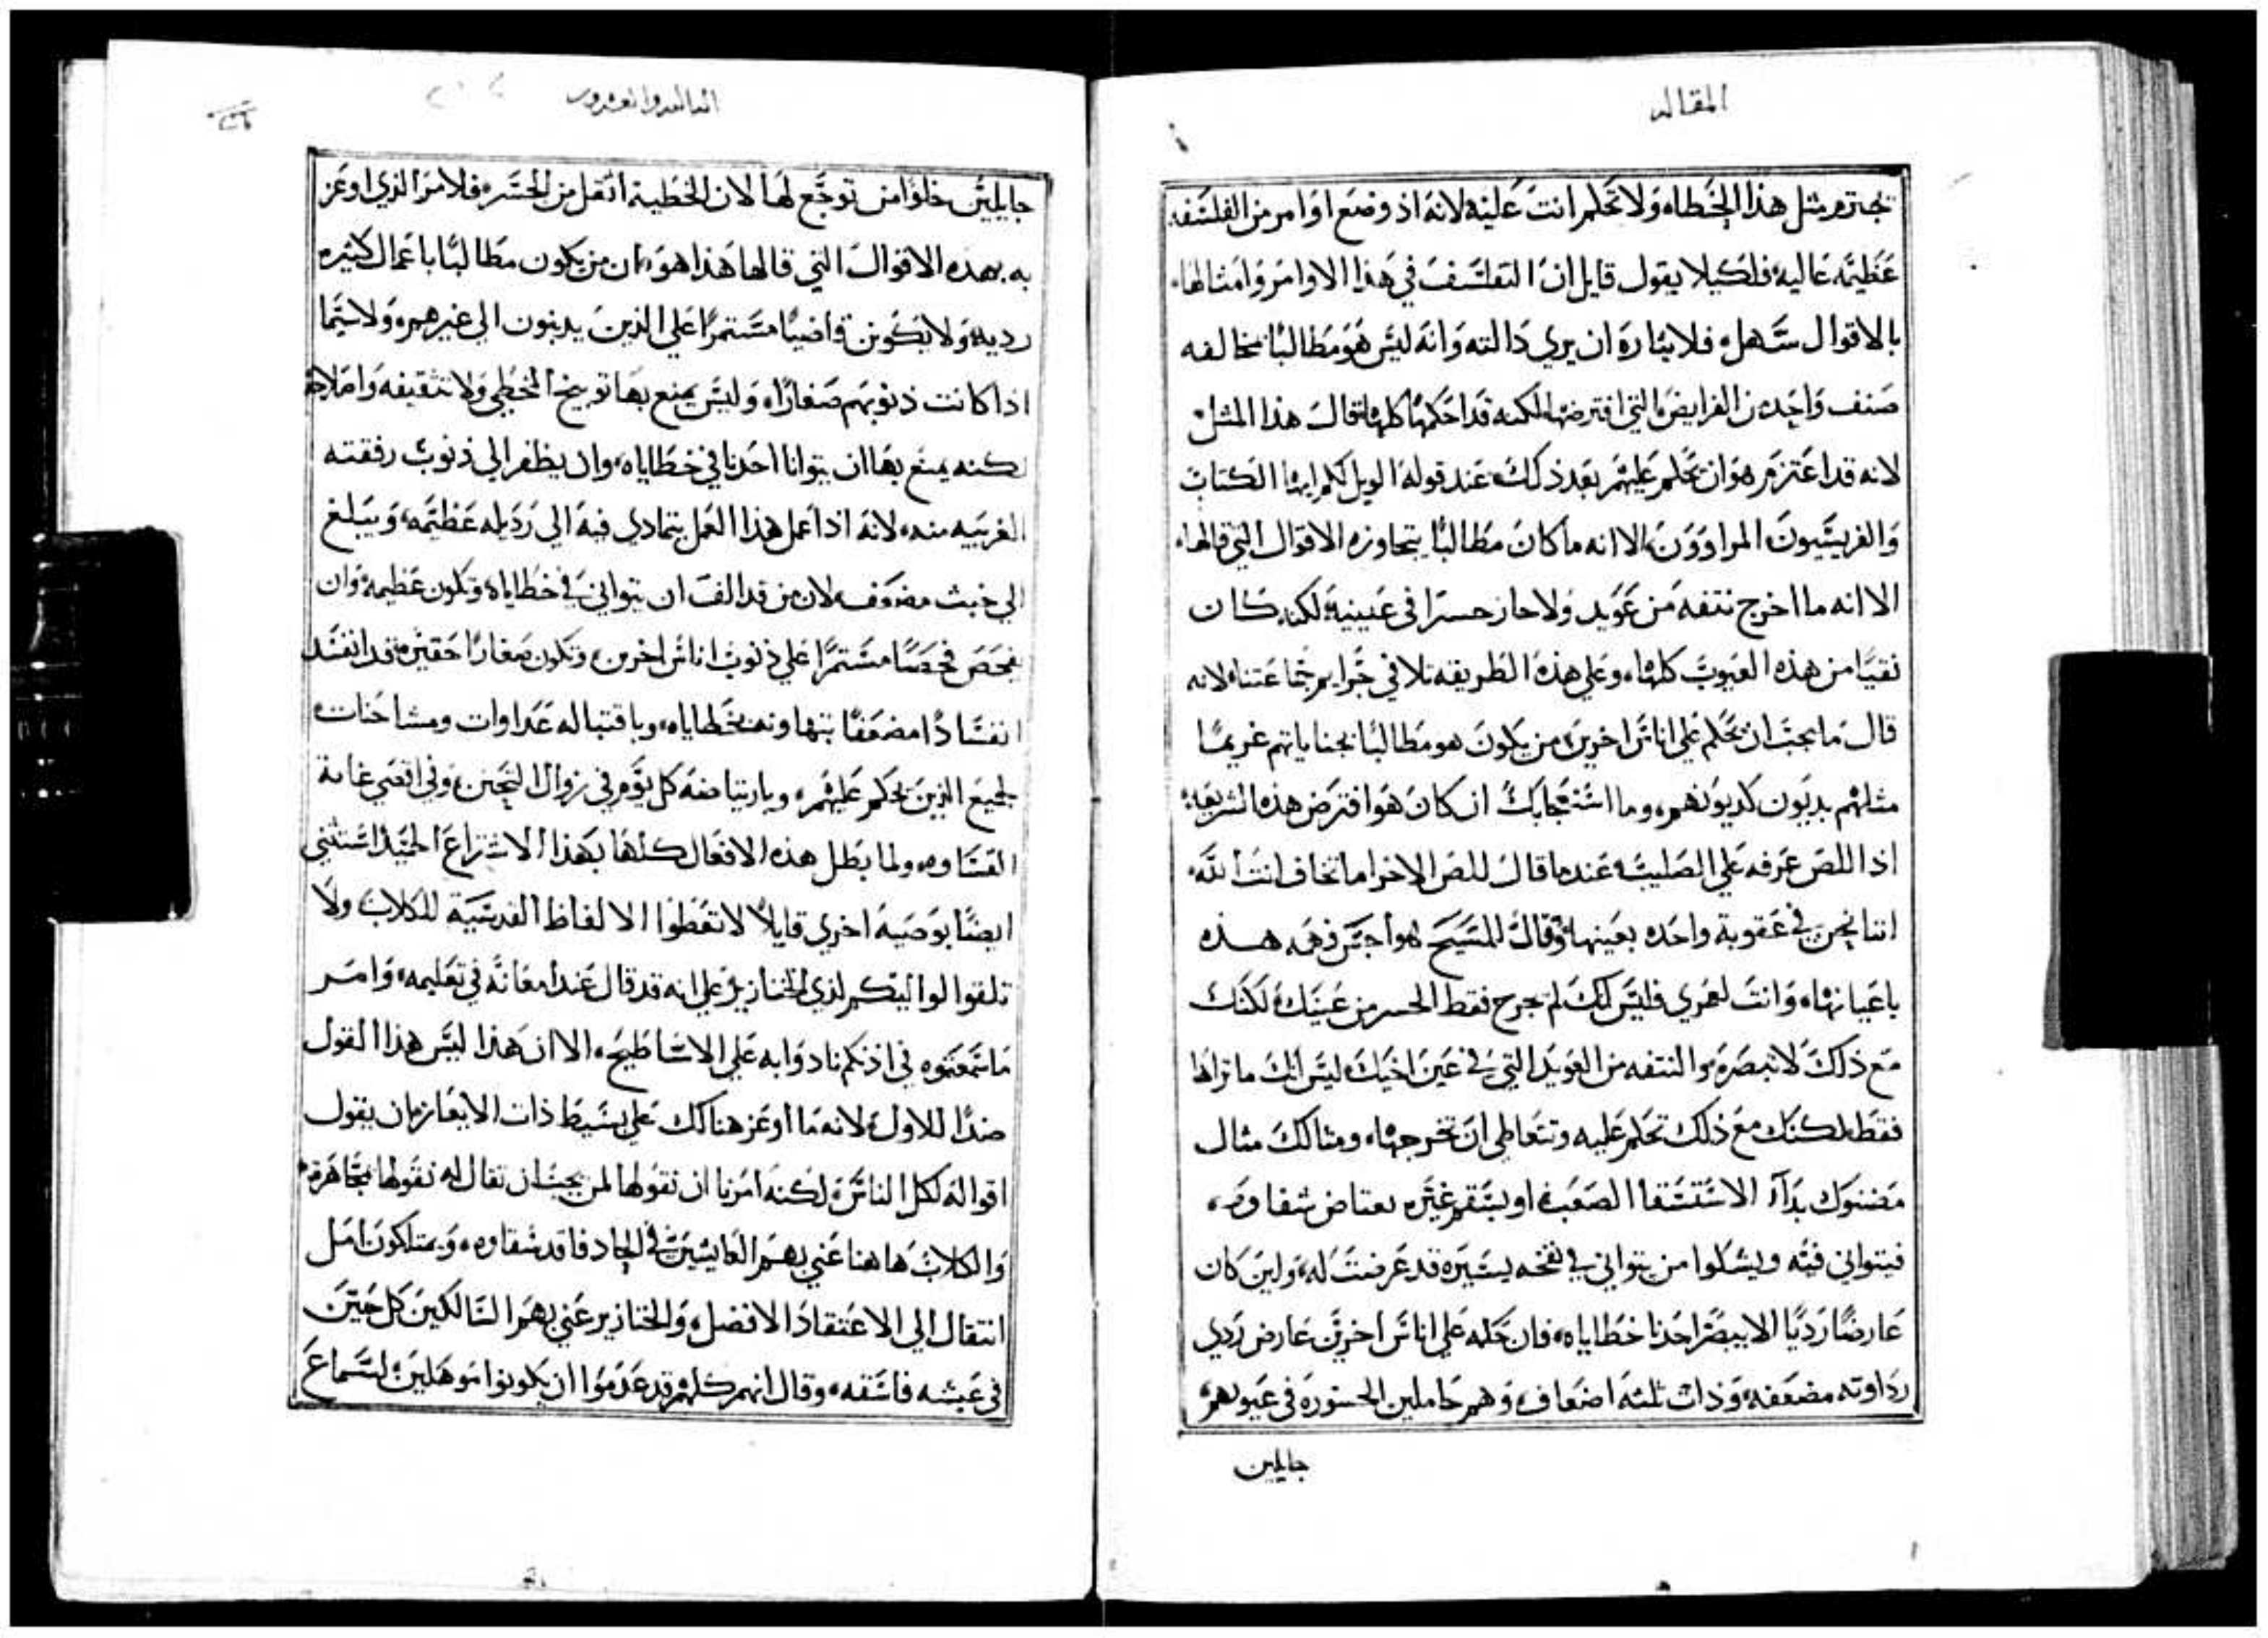 المقاله
تجترم مثل هذا الخطاء ولا تحكم انت عليه لانه اذ وضع اوامر من الفلسفه
عظيمه عاليه فلكيلا يقول قايل ان التفلسف في هذا الاوامر وامثالها
بالاقوال سهل فلايثاره ان يري دالته وانه ليس هو مطالبًا بمخالفه
صنف واحد من الفرايض التي افترضها لكنه قد احكمها كلها قال هذا المثل
لانه قد اعتزم هو ان يحكم عليهم بعد ذلك عند قوله الويل لكم ايها الكتاب
والفريسيون المراوون الا انه ما كان مطالبًا بتجاوزه الاقوال التي قالها
الا انه ما اخرج نتفه من عويد ولا حاز حسرا في عينيه لكنه كان
نقيًا من هذه العيوب كلها وعلي هذه الطريقه تلافي جرايم جماعتنا لانه
قال ما يجب ان يحكم علي اناس اخرين من يكون هو مطالبًا بجناياتهم غريمًا
مثلهم بديون كديونهم وما استعجابك ان كان هو افترض هذه الشريعه
اذا اللص عرفه علي الصليب عندما قال للص الاخر اما تخاف انت الله
اننا نحن في عقوبة واحده بعينها وقال المسيح هواجس فهمه هذه
باعيانها وانت لعمري فليس انك لم تخرج فقط الحسر من عينك لكنك
مع ذلك لا تبصره والنتفه من العويد التي في عين اخيك ليس انك ما تراها
فقط لكنك مع ذلك تحكم عليه وتتعاطي ان تخرجها ومثالك مثال
مضنوك بداآ الاستسقا الصعب او بسقم غيره يعتاص شفاوه
فيتواني فيه ويشكوا من يتواني في نفخه يسيره قد عرضت له ولين كان
عارضًا رديًا الا يبصر احدنا خطاياه فان حكمه علي اناس اخرين عارض ردي
رداوته مضعفه وذات ثلثه اضعاف وهم حاملين الحسور في عيونهم
جايلين
الثالثه والعشرون
جايلين خلوًا من توجع لها لان الخطية اثقل من الحسر فلامر الذي اوعز
به بهذه الاقوال التي قالها هذا هو ان من يكون مطالبًا باعمال كثيره
رديه ولا يكونن قاضيًا مستمرًا علي الذين يدنبون الي غيرهم ولا سيما
اذا كانت ذنوبهم صغارًا وليس يمنع بها توبيخ المخطي ولا تثقيفه واصلاحه
لكنه يمنع بها ان يتوانا احدنا في خطاياه وان يظفر الي ذنوب رفقته
الغريبه منه لانه اذا عمل هذا العمل يتمادي فيه الي رديله عظيمه ويبلغ
الي خبث مضعف لان من قد الف ان يتواني في خطاياه وتكون عظيمه وان
يفحص فحصًا مستمرًا علي ذنوب اناس اخرين وتكون صغارًا حقيره قد انفسد
انفسادًا مضعفًا بتهاونه بخطاياه وباقتباله عداوات ومشاحنات
لجميع الذين يحكم عليهم وبارتياضه كل يوم في زوال التحنن وفي اقصي غاية
القساوه ولما بطل هذه الافعال كلها بهذا الاشتراع الحميد استثني
ايضًا بوصية اخري قايلاً لا تعطوا الالفاظ القدسية للكلاب ولا
تلقوا لواليكم لذي الخنازير علي انه قد قال عند امعانه في تعليمه وامر
ما سمعتموه في اذنكم نادوا به علي الاساطيح الا ان هذا ليس هذا القول
ضدًا للاول لانه ما اوعز هنالك علي بسيط ذات الايعاز بان يقول
اقواله لكل الناس لكنه امرنا ان نقولها لمن يجب ان تقال له نقولها بمجاهرة
والكلاب هاهنا عني بهم العايشين في الحاد فاقد شفاوه ويمتلكون امل
انتقال الي الاعتقاد الافضل والخنازير عني بهم السالكين كل حين
في عيشه فاسقه وقال انهم كلهم قد عدموا ان يكونوا موهلين لسماع